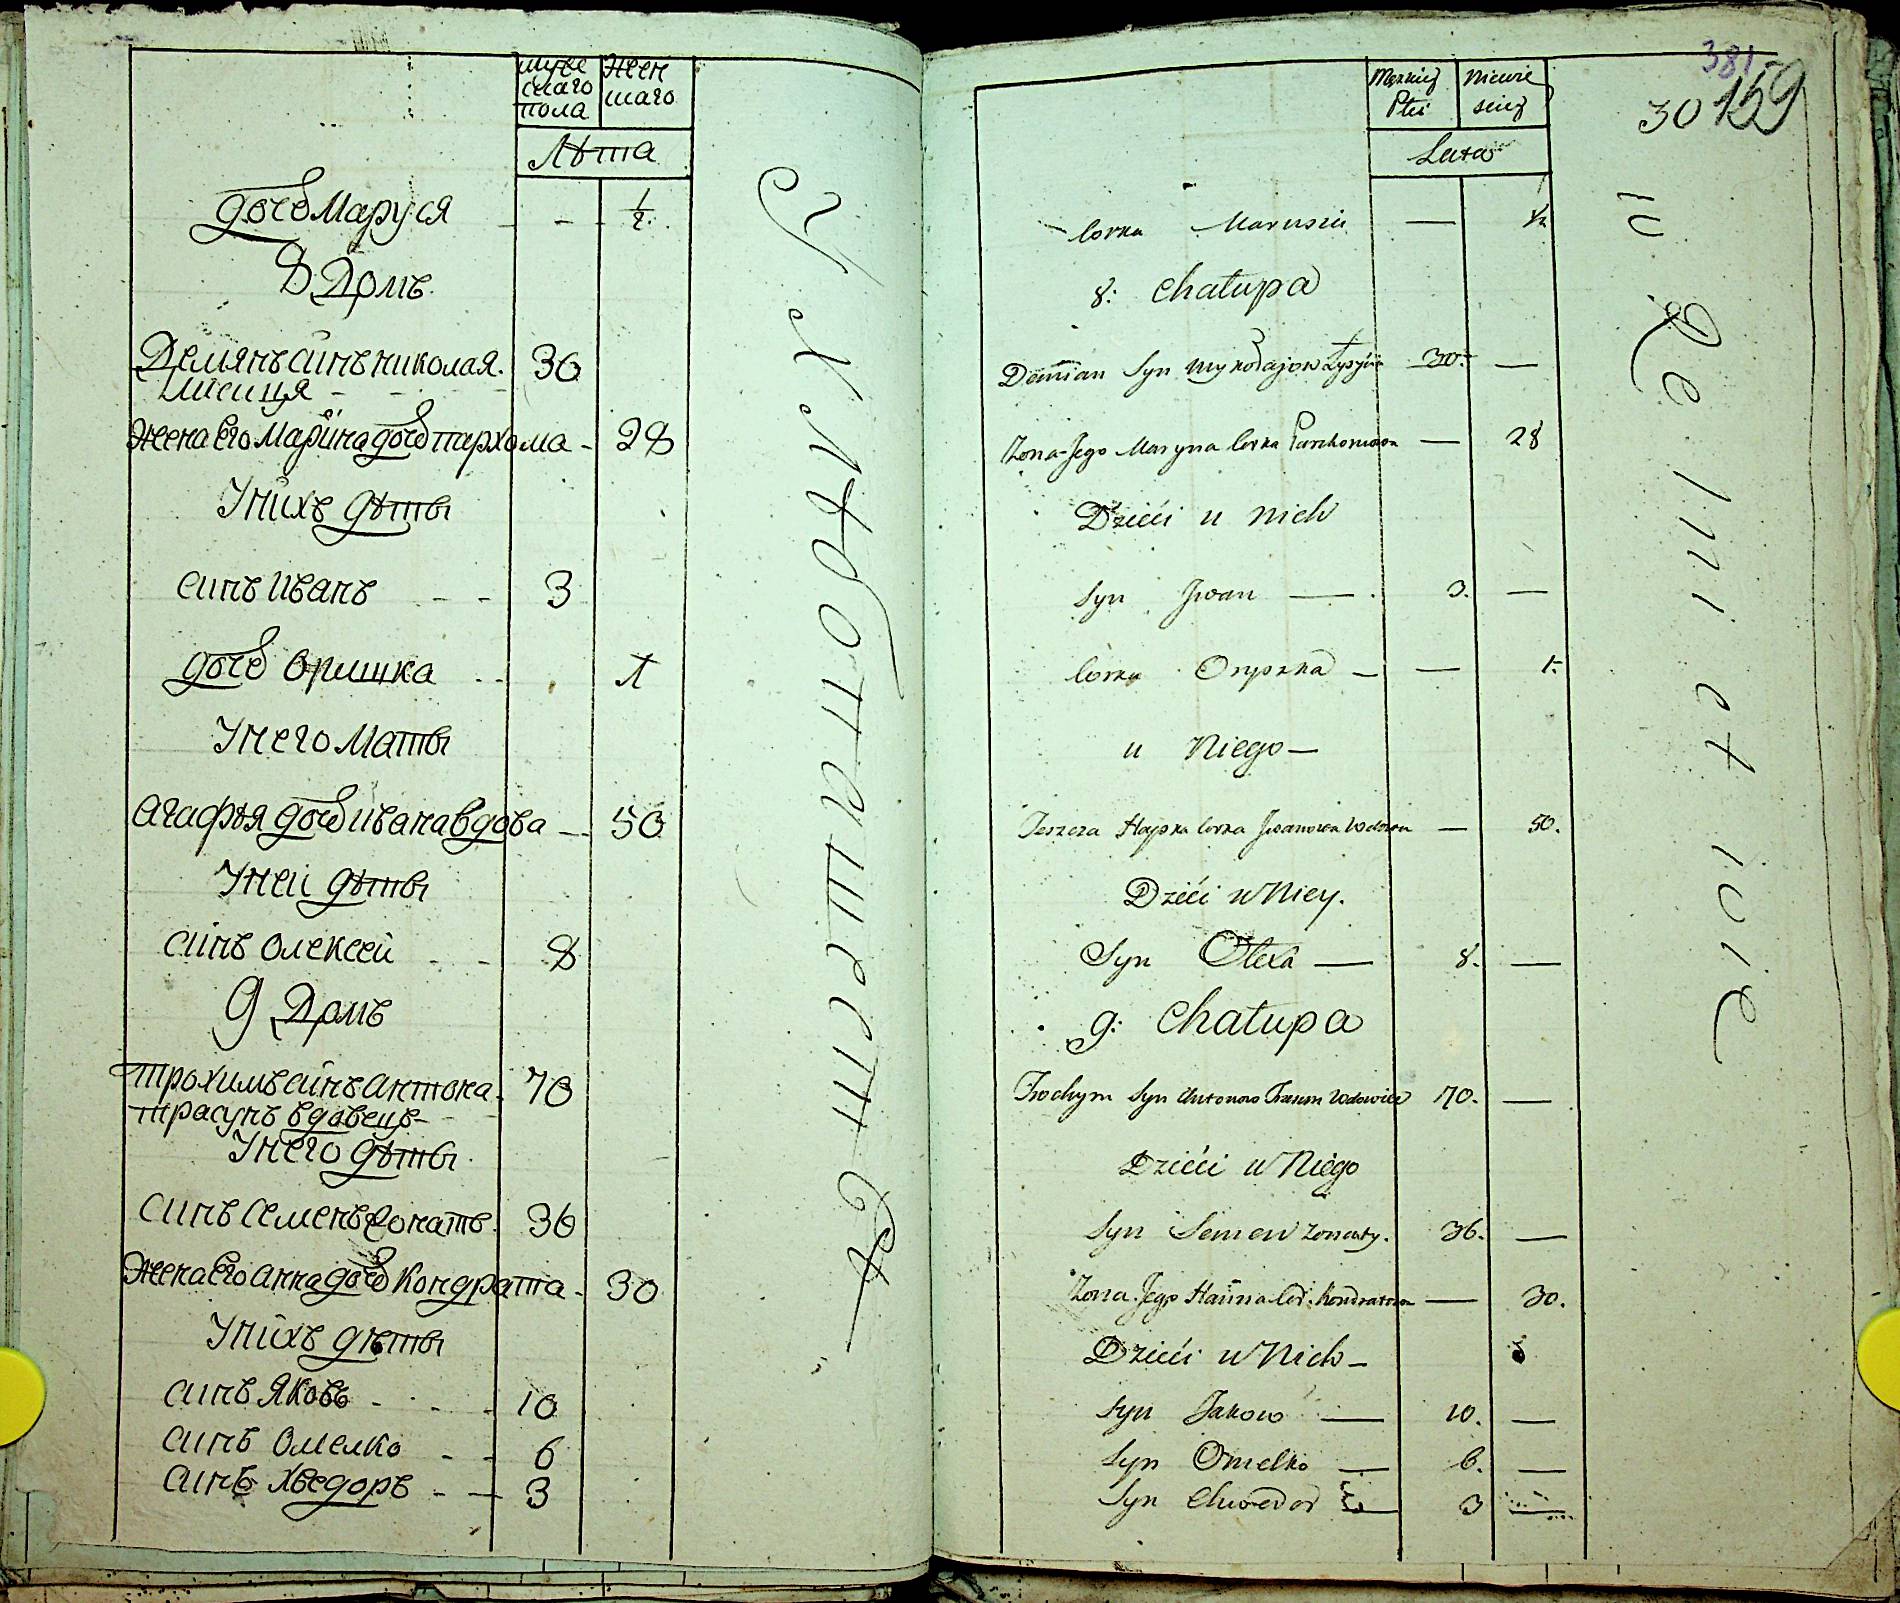 муже
скаго
пола
жен
скаго
Лѣта
дочь Маруся - - 1/2
8 Домъ
Демянъ синъ николая 30
жена его Марина дочь пархома - 28
Унихъ дѣты
синъ иванъ - - 3
дочь Оришка - - 1
Унего Маты
агафья дочь ивана вдова - 50
Уней дѣты
синъ олексей - - 8
9 Домъ
трохимъ синъ антона 70
трасунъ вдовецъ
Унего дѣты
синъ Семенъ жонатъ 36
жена его анна дочь Кондрата - 30
Унихъ дѣты
синъ Яковъ - - 10
синъ Омелко - - 6
синъ хведоръ - - 3
381
30 159
Męzkiey
Płci
Niewie
sciey
Lata
Corka Marusia — 1/2
8: Chałupa
Demian Syn Mykołajow 30. —
Zona Jego Maryna Corka Parchomowa — 28
Dzieći u nich
Syn Jwan — 3. —
Corka Oryszka — — 1.
u Niego —
Hapka Corka Jwanowa Wdowa — 50.
Dzieći u Niey.
Syn Olexa — 8. —
9: Chałupa
Trochym Syn Antonow Trasun Wdowiec 70. —
Dzieći u Niego
Syn Semen Zonaty. 36. —
Zona Jego Hanna Cor. Kondratowa — 30.
Dzieći u Nich —
Syn Jakow — 10. —
Syn Omelko — 6. —
Syn Chwedor — 3 —